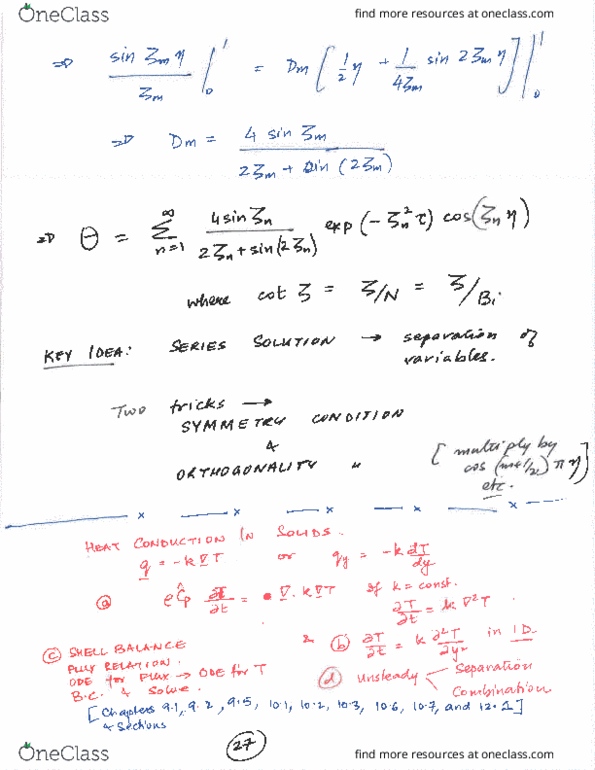 OneClass
find more resources at oneclass.com
⇒ sin ζₘη / ζₘ |₀¹ = Dₘ [ 1/2 η + 1/4ζₘ sin 2ζₘη ] |₀¹
⇒ Dₘ = 4 sin ζₘ / 2ζₘ + sin (2ζₘ)
⇒ Θ = Σ n=1 ∞ 4 sin ζₙ / 2ζₙ + sin(2ζₙ) exp(-ζₙ²τ) cos(ζₙη)
where cot ζ = ζ/N = ζ/Bi
KEY IDEA: SERIES SOLUTION → separation of
variables.
Two tricks →
SYMMETRY CONDITION
&
ORTHOGONALITY "
[ multiply by
cos (m+1/2) πη ]
etc.
HEAT CONDUCTION IN SOLIDS.
q = -k∇T or qy = -k dT/dy
(a) ρĈp ∂T/∂t = ∇.k∇T if k = const.
∂T/∂t = k ∇²T
& (b) ∂T/∂t = k ∂²T/∂y² in 1D.
(c) SHELL BALANCE
FLUX RELATION.
ODE for FLUX → ODE for T
B.C. & Solve.
(d) Unsteady Separation
Combination
[Chapters 9.1, 9.2, 9.5, 10.1, 10.2, 10.3, 10.6, 10.7, and 12.1]
& Sections
27
OneClass
find more resources at oneclass.com